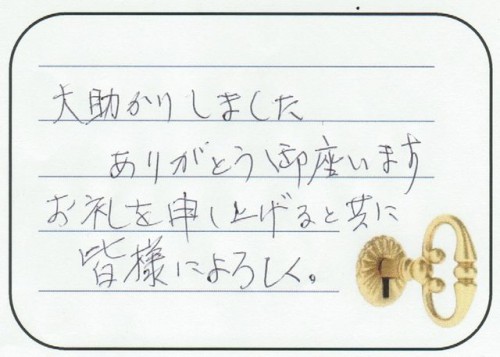 大助かりしました
ありがとう御座います
お礼を申し上げると共に
皆様によろしく。